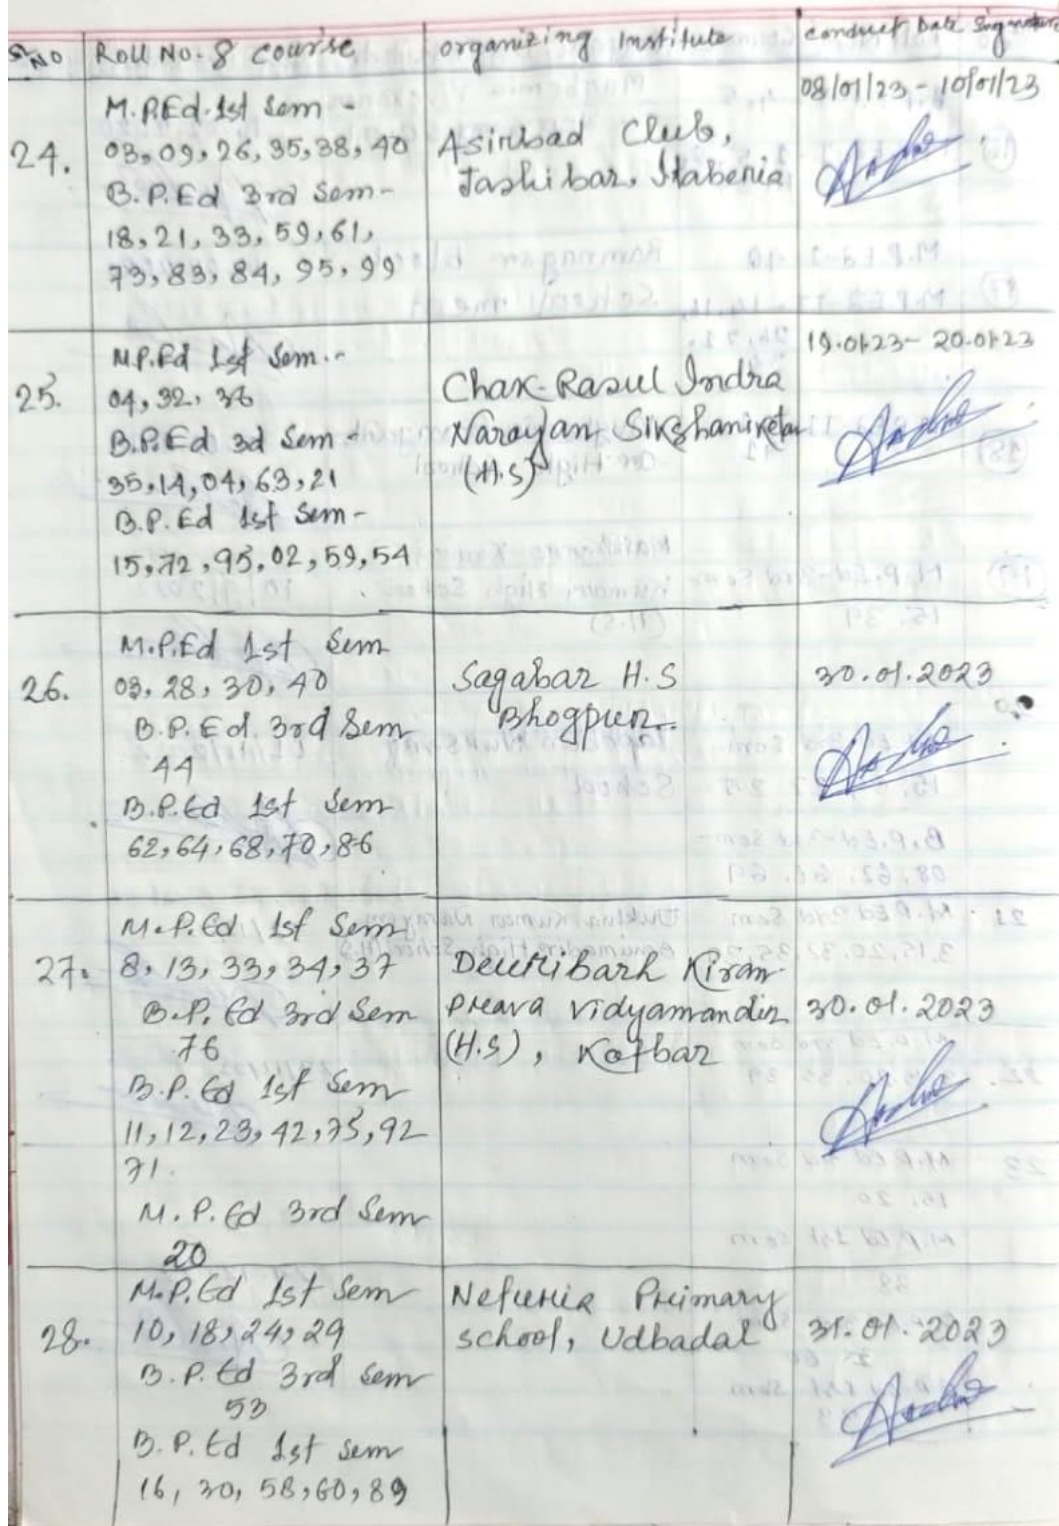 Sr. No Roll No. & Course organizing Institute conduct Date Signature
24.
M.P.Ed. 1st Sem -
03, 09, 26, 35, 38, 40
B.P.Ed 3rd Sem -
18, 21, 33, 59, 61,
73, 83, 84, 95, 99
Asirbad Club,
Itabenia
08/01/23 - 10/01/23
25.
M.P.Ed 1st Sem. -
04, 32, 36
B.P.Ed 3d Sem -
35, 14, 04, 63, 21
B.P.Ed 1st Sem -
15, 72, 95, 02, 59, 54
Chak-Rasul Indra
Narayan Sikshaniketan
(H.S)
19.01.23 - 20.01.23
26.
M.P.Ed 1st Sem
03, 28, 30, 40
B.P.Ed. 3rd Sem
44
B.P.Ed 1st Sem
62, 64, 68, 70, 86
Sagabar H.S
Bhogpur.
30.01.2023
27.
M.P.Ed 1st Sem
8, 13, 33, 34, 37
B.P.Ed 3rd Sem
76
B.P.Ed 1st Sem
11, 12, 23, 42, 75, 92
71.
M.P.Ed 3rd Sem
20
Deulibarh Kiran
Prava Vidyamandir
(H.S), Kotbar
30.01.2023
28.
M.P.Ed 1st Sem
10, 18, 24, 29
B.P.Ed 3rd Sem
53
B.P.Ed 1st Sem
16, 30, 58, 60, 89
Primary
School, Udbadal
31.01.2023